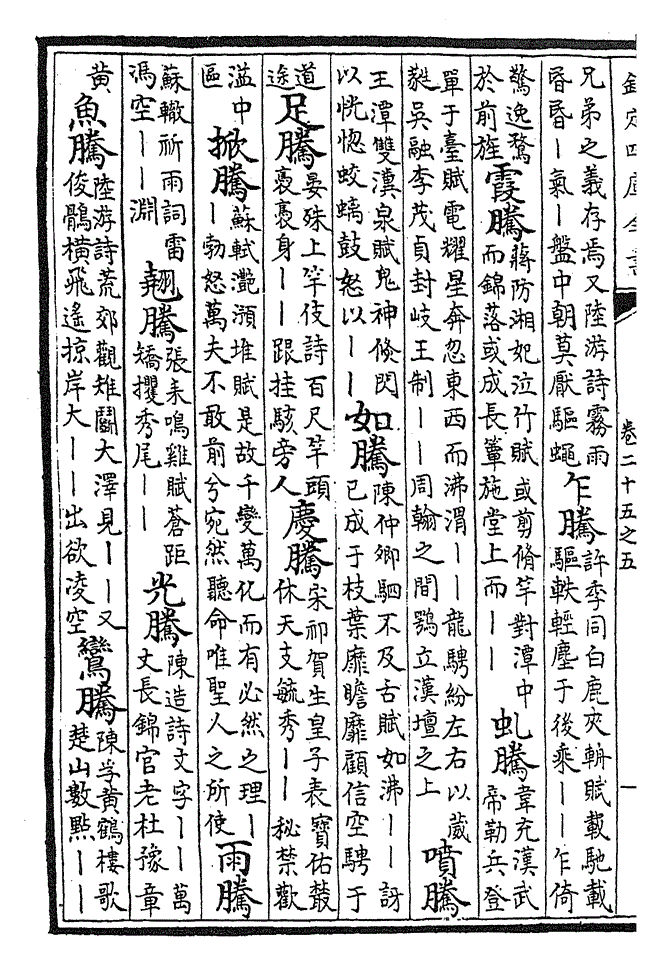 欽定四庫全書
卷二十五之五
一
兄弟之義存焉又陸游詩霧雨
昏昏丨氣丨盤中朝莫厭驅蠅
乍騰
許季同白鹿夾輈賦載馳載
驅軼輕塵于後乘丨丨乍倚
驚逸騖
於前旌
霞騰
蔣防湘妃泣竹賦或剪脩竿對潭中
而錦落或成長簟施堂上而丨丨
虬騰
韋充漢武
帝勒兵登
單于臺賦電耀星奔忽東西而沸渭丨丨龍騁紛左右以葳
蕤吳融李茂貞封岐王制丨丨周翰之間鶚立漢壇之上
噴騰
王潭雙漢泉賦鬼神倏閃
以恍惚蛟螭鼓怒以丨丨
如騰
陳仲卿駟不及舌賦如沸丨丨訝
已成于枝葉靡瞻靡顧信空騁于
道
途
足騰
晏殊上竿伎詩百尺竿頭
裊裊身丨丨跟挂駭旁人
慶騰
宋祁賀生皇子表寶佑叢
休天支毓秀丨丨秘禁歡
溢中
區
掀騰
蘇軾灩澦堆賦是故千變萬化而有必然之理丨
丨勃怒萬夫不敢前兮宛然聽命唯聖人之所使
雨騰
蘇轍祈雨詞雷
馮空丨丨淵
翹騰
張耒鳴雞賦蒼距
矯攫秀尾丨丨
光騰
陳造詩文字丨丨萬
丈長錦官老杜豫章
黃
魚騰
陸游詩荒郊觀雉鬬大澤見丨丨又
俊鶻橫飛遙掠岸大丨丨出欲凌空
鸞騰
陳孚黃鶴樓歌
楚山數點丨丨